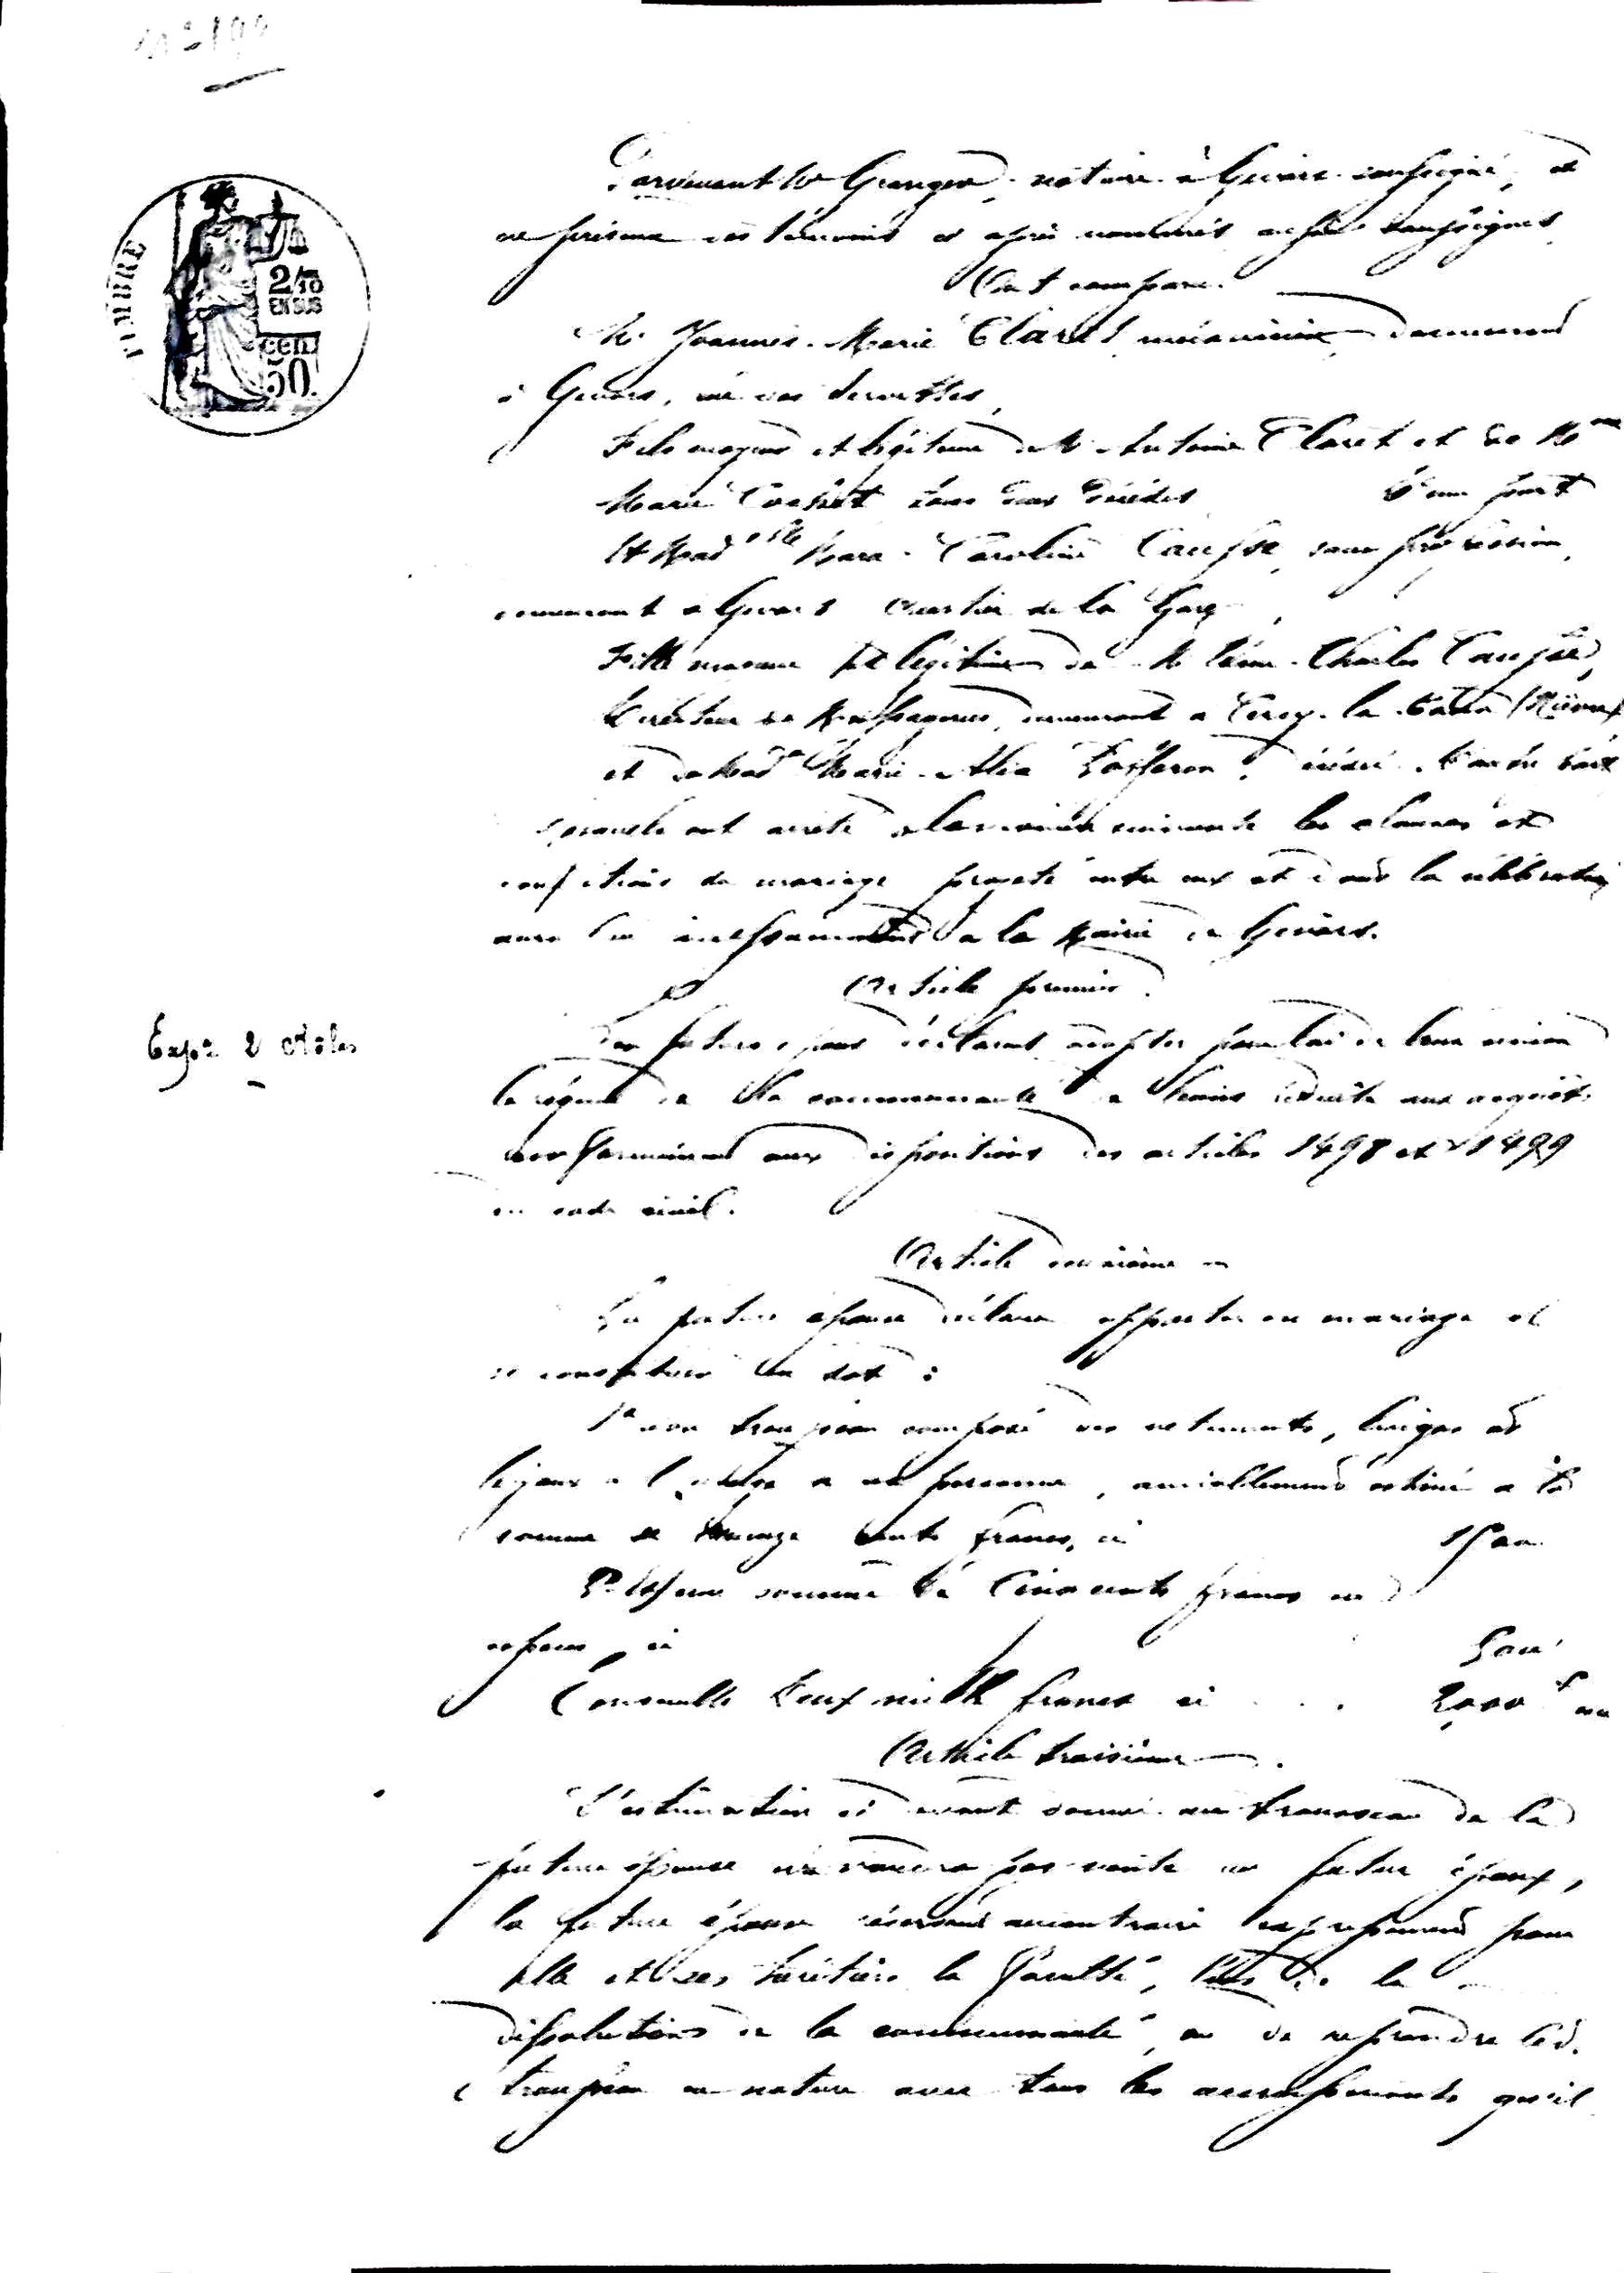 TIMBRE
2/10
EN SUS
cen.
50.
Pardevant Me Granger, notaire à Givors soussigné, et
en présence des témoins ci après nommés aussi soussignés
Ont comparu.
M. Joannès-Marie Claret mécanicien, demeurant
à Givors, né aux
Fils majeur et légitime de M. Antoine Claret et de Mme
Marie Cochet tous deux décédés D'une part
Et Madelle Caroline Causse, sans profession,
demeurant à Givors quartier de la Gare,
Fille majeure et légitime de M. Charles Causse,
Directeur de demeurant à Cercy-la-Tour (Nièvre)
et de Made Marie décédée. D'autre part
Lesquels ont arrêté de la manière suivante les clauses et
conditions du mariage projeté entre eux et dont la célébration
aura lieu incessamment à la Mairie de Givors.
Article premier.
Expé 2 rôles
Les futurs époux déclarent adopter pour loi de leur union
le régime de la communauté de biens réduite aux acquêts
conformément aux dispositions des articles 1498 et 1499
du code civil.
Article deuxième
La future épouse déclare apporter en mariage et
se constituer en dot :
1° son trousseau composé des vêtements, linges et
bijoux à l'usage de sa personne, amiablement estimé à la
somme de quinze cents francs, ci 1500
2° Et une somme de Cinq cents francs en
espèces, ci 500
Ensemble Deux mille francs ci . . . 2000 f
Article troisième.
L'estimation ci avant donnée au trousseau de la
future épouse n'en vaudra pas vente au futur époux,
la future épouse réservant au contraire expressément pour
elle et ses héritiers la faculté, lors de la
dissolution de la communauté, ou de reprendre led.
trousseau en nature avec tous les accroissements qu'il